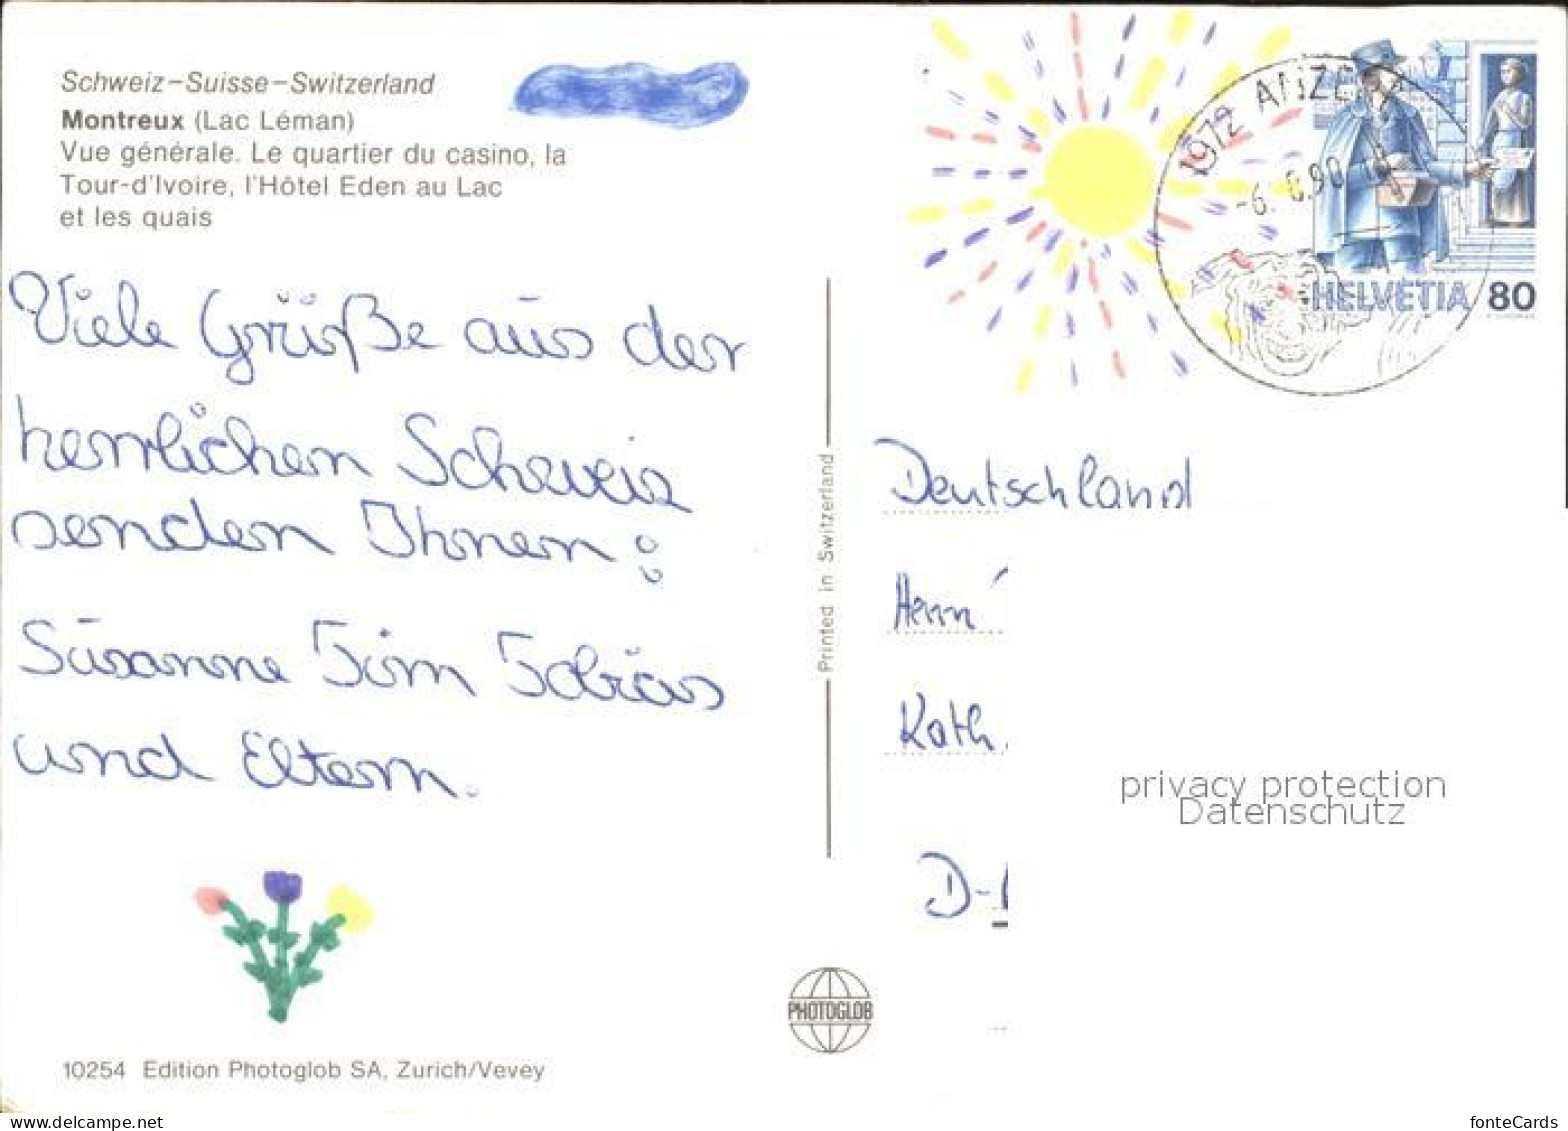 Schweiz–Suisse–Switzerland
Montreux (Lac Léman)
Vue générale. Le quartier du casino, la
Tour-d'Ivoire, l'Hôtel Eden au Lac
et les quais
Viele Grüße aus der
herrlichen Schweiz
senden Ihnen:
Susanne Tim Tobias
und Eltern.
10254 Edition Photoglob SA, Zurich/Vevey
Printed in Switzerland
PHOTOGLOB
1972 ANZE
HELVETIA 80
Deutschland
Herrn
Kath.
D-
privacy protection
Datenschutz
www.delcampe.net
fonteCards